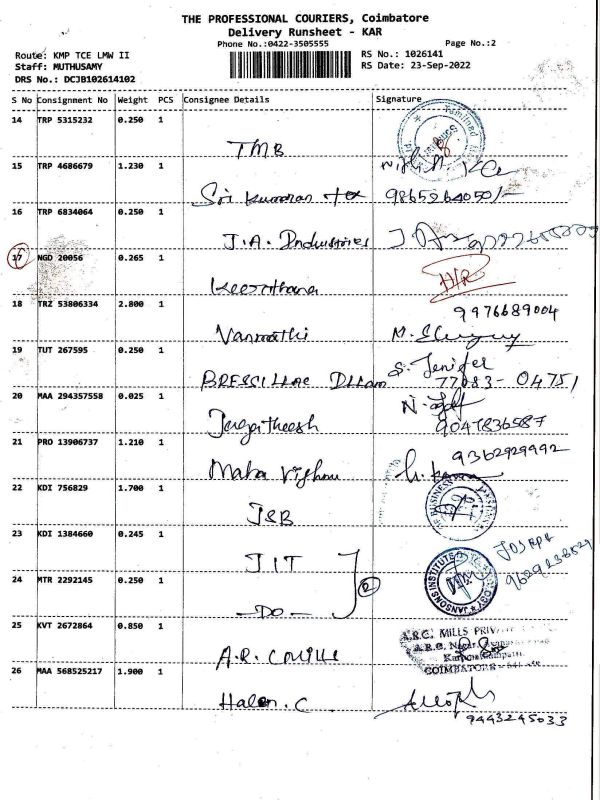 THE PROFESSIONAL COURIERS, Coimbatore
Delivery Runsheet - KAR
Phone No.:0422-3505555 Page No.:2
Route: KMP TCE LMW II RS No.: 1026141
Staff: MUTHUSAMY RS Date: 23-Sep-2022
DRS No.: DCJB102614102
S No Consignment No Weight PCS Consignee Details Signature
14 TRP 5315232 0.250 1
TMB
15 TRP 4686679 1.230 1
Sri Kumaran Tex 9865264050/-
16 TRP 6834064 0.250 1
J.A. Industries
17 NGD 20056 0.265 1
Keerthana H/R
18 TRZ 53806334 2.800 1
9976689004
Vanmathi M.
19 TUT 267595 0.250 1
S. Jenifer
BRESSILLAC 77083-04751
20 MAA 294357558 0.025 1
Jagatheesh 9047836587
21 PRO 13906737 1.210 1
9362929992
Maha Vishnu
22 KDI 756829 1.700 1
JSB BUSINESS
23 KDI 1384660 0.245 1
JIT JOSEPH
24 MTR 2292145 0.250 1
-DO- 2 JANSONS INSTITUTE TECHNOLOGY
25 KVT 2672864 0.850 1
A.R.G. MILLS
A.R.G. Nagar
COIMBATORE
A.R.
26 MAA 568525217 1.900 1
Halen. C
9443245033